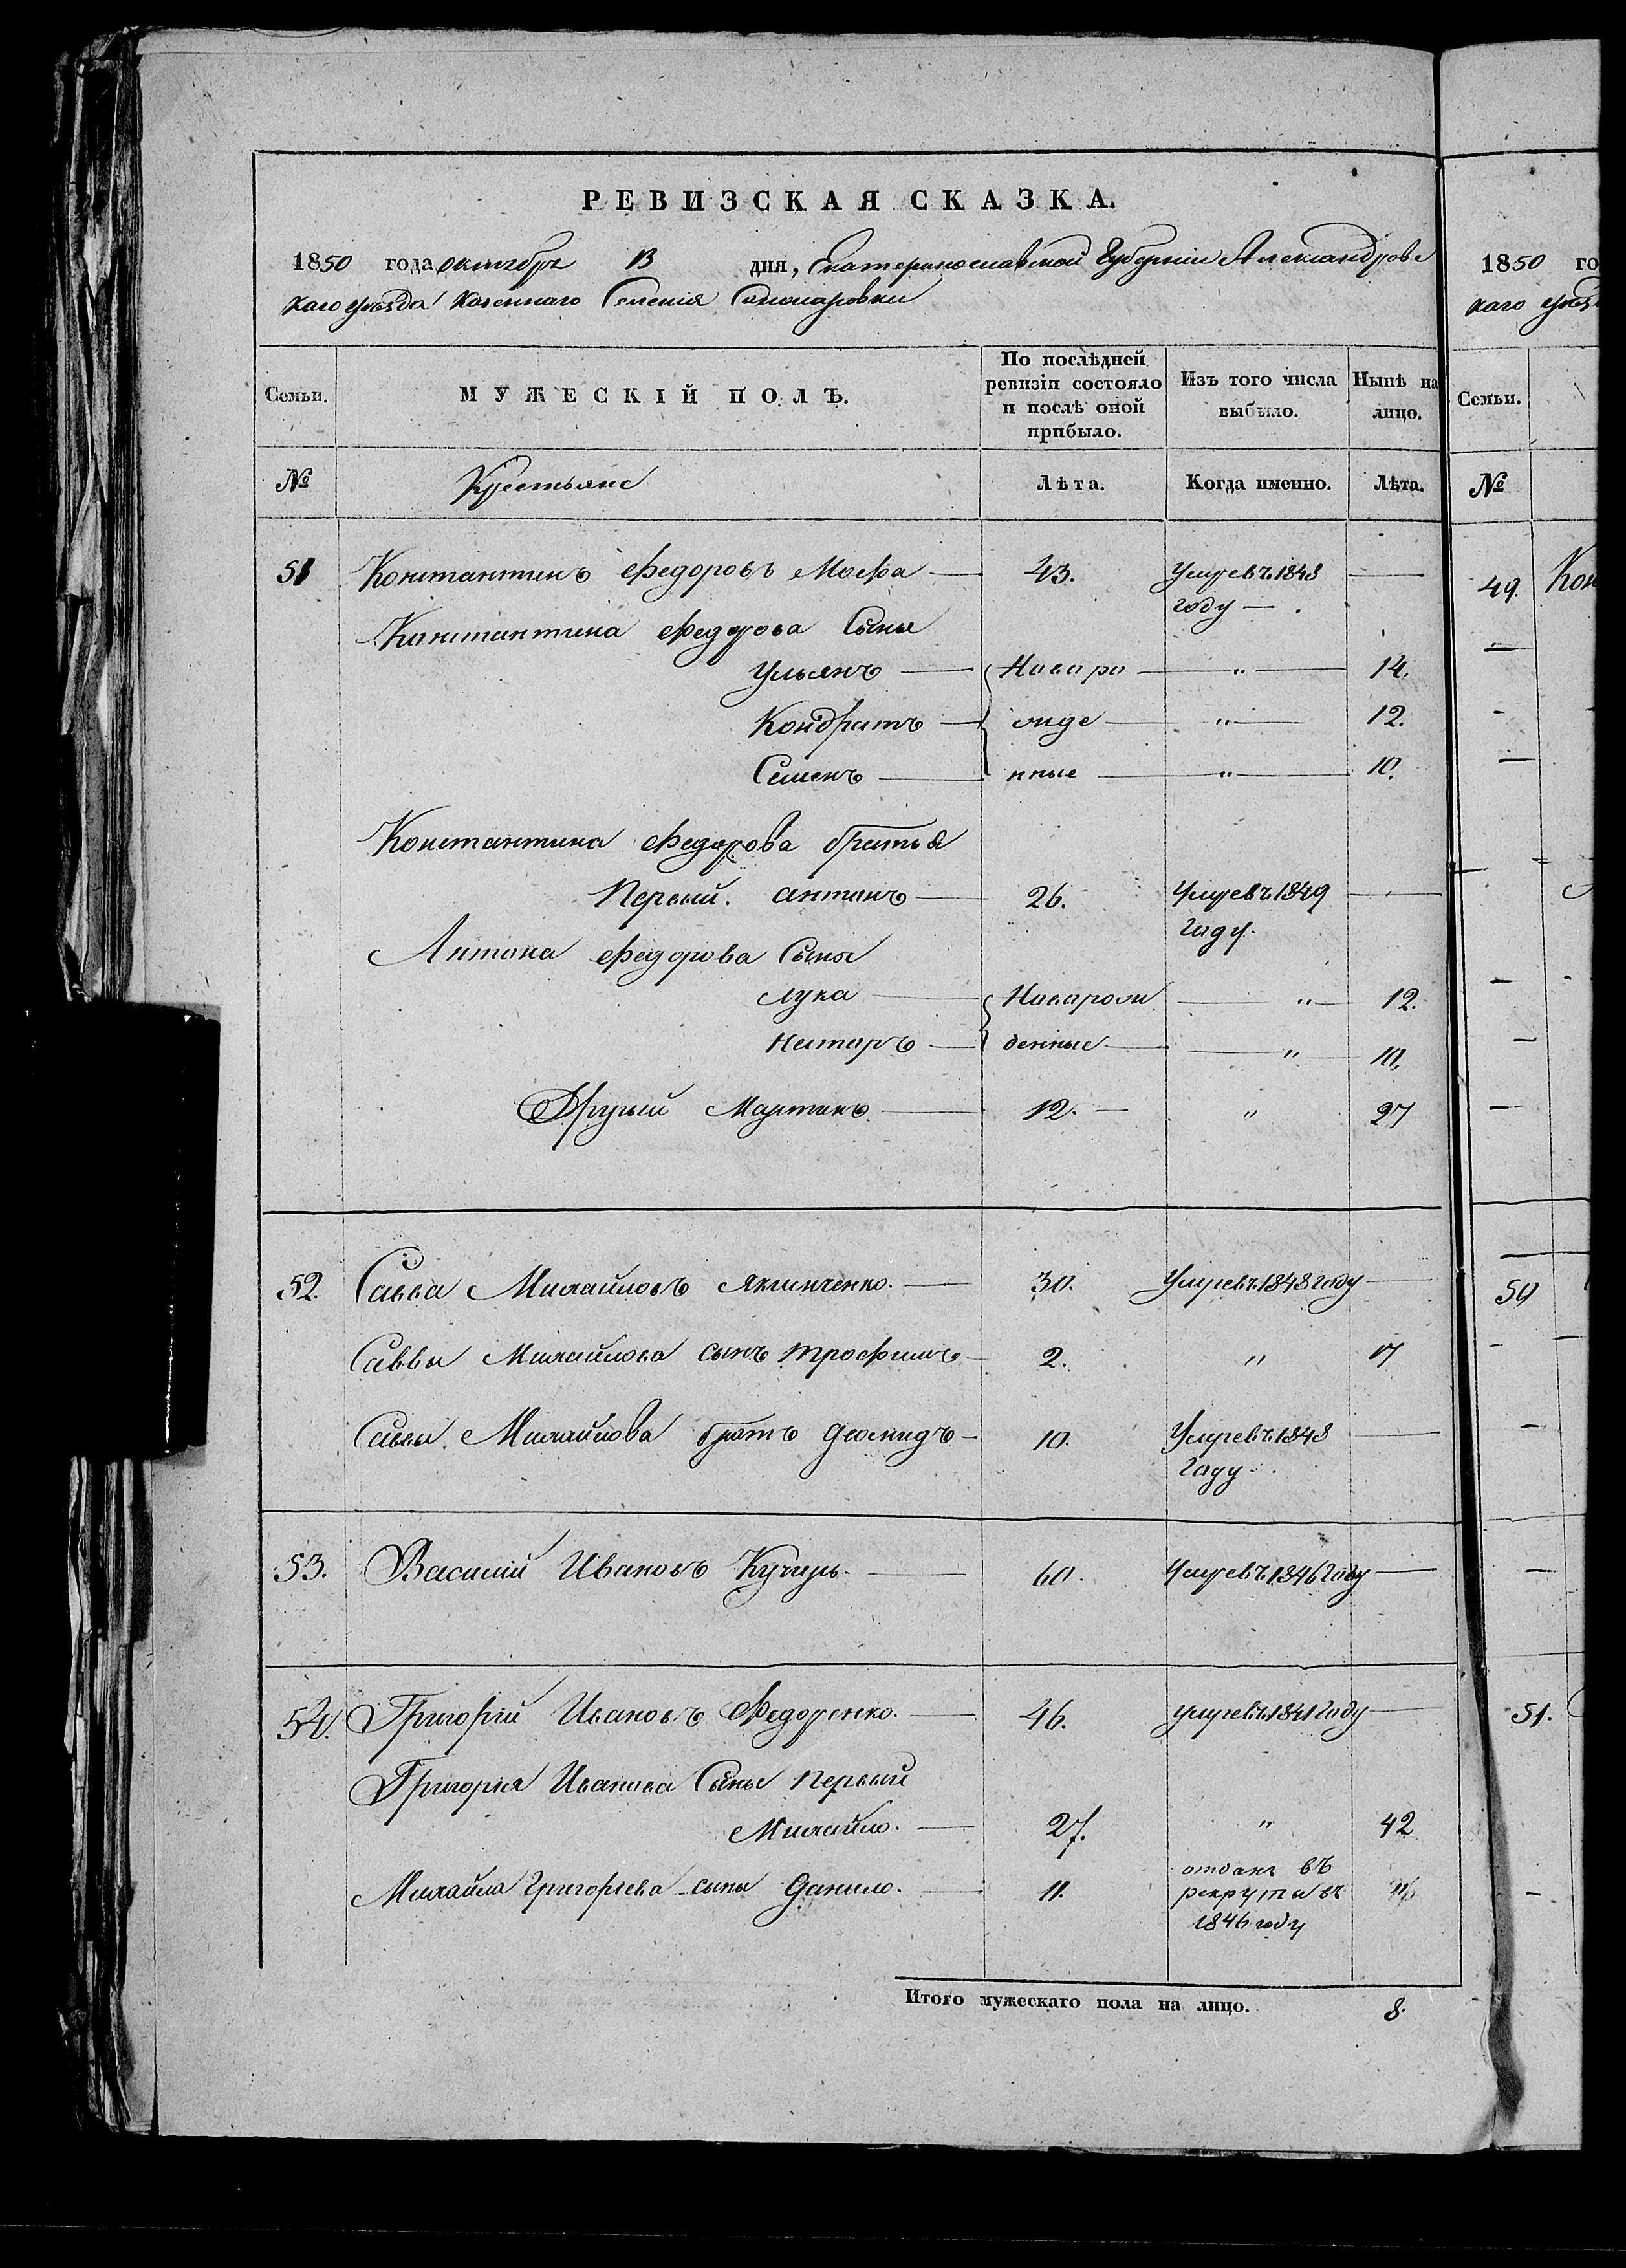 РЕВИЗСКАЯ СКАЗКА.
1850 года октября 13 дня, Екатеринославской Губерніи Александровс
каго уѣзда Казеннаго Селенія
Семьи. МУЖЕСКІЙ ПОЛЪ. По послѣдней ревизіи состояло и послѣ оной прибыло. Изъ того числа выбыло. Нынѣ на лицо.
№ Крестьяне Лѣта. Когда именно. Лѣта.
51 Константинъ Федоровъ Мокра 43. Умре въ 1848
году
Константина Федорова Сыны
Ульянъ Новаро " 14.
Кондратъ жде " 12.
Семенъ нные " 10.
Константина Федорова братья
Первый. антонъ 26. Умре въ 1849
году.
Антона Федорова Сыны
лука Новарож " 12.
Нестаръ денные " 10.
Другий Мартинъ 12. " 27
52. Савва Михайловъ Якимченко. 30. Умре въ 1848 году
Саввы Михайлова сынъ трофимъ 2. " 17
Саввы Михайлова братъ диомидъ 10. Умре въ 1848
году
53. Василій Ивановъ Кучеръ. 60. Умре въ 1846 году
54. Григорій Ивановъ Федоренко. 46. умре въ 1841 году
Григорія Иванова Сыны первый
Михайло. 27. " 42
Михайла Григоріева сыны данило. 11. отданъ въ
рекруты въ
1846 году
Итого мужескаго пола на лицо. 8.
1850 го
каго уѣзд
Семьи.
№
49. Кон
50
51.